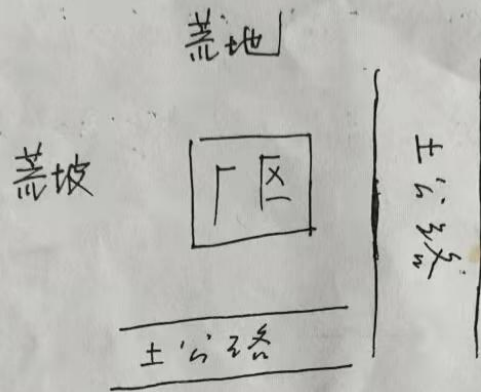 荒地
荒坡
厂区
土公路
土公路